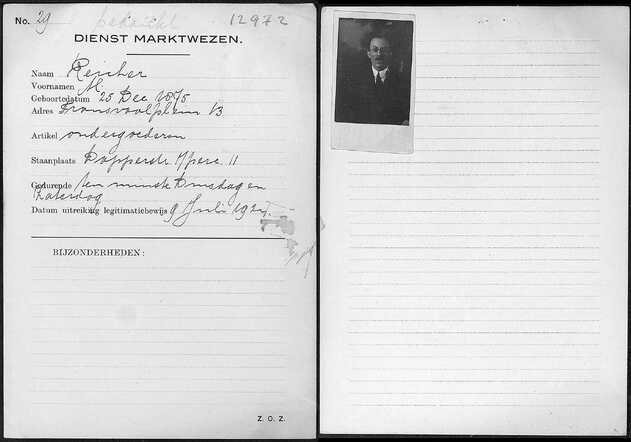 No. 29 12972
DIENST MARKTWEZEN.
Naam Reicher
Voornamen M.
Geboortedatum 25 Dec 1875
Adres Transvaalplein 13
Artikel ondergoederen
Staanplaats Dapperstr
Gedurende ten minste Dinsdag en
Zaterdag
Datum uitreiking legitimatiebewijs 9 Juli
BIJZONDERHEDEN:
Z. O. Z.